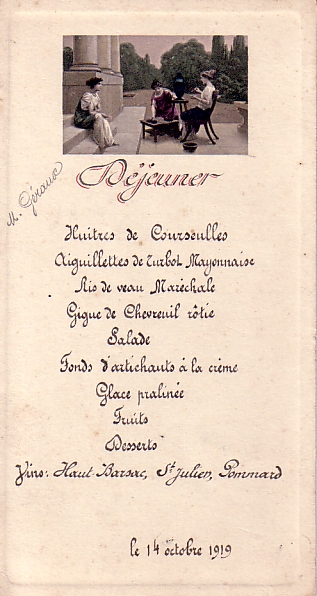 Déjeuner
M. Géraux
Huîtres de Courseulles
Aiguillettes de Turbot Mayonnaise
Ris de veau Maréchale
Gigue de Chevreuil rôtie
Salade
Fonds d'artichauts à la crème
Glace pralinée
Fruits
Desserts
Vins: Haut-Barsac, St Julien, Pommard
le 14 octobre 1919